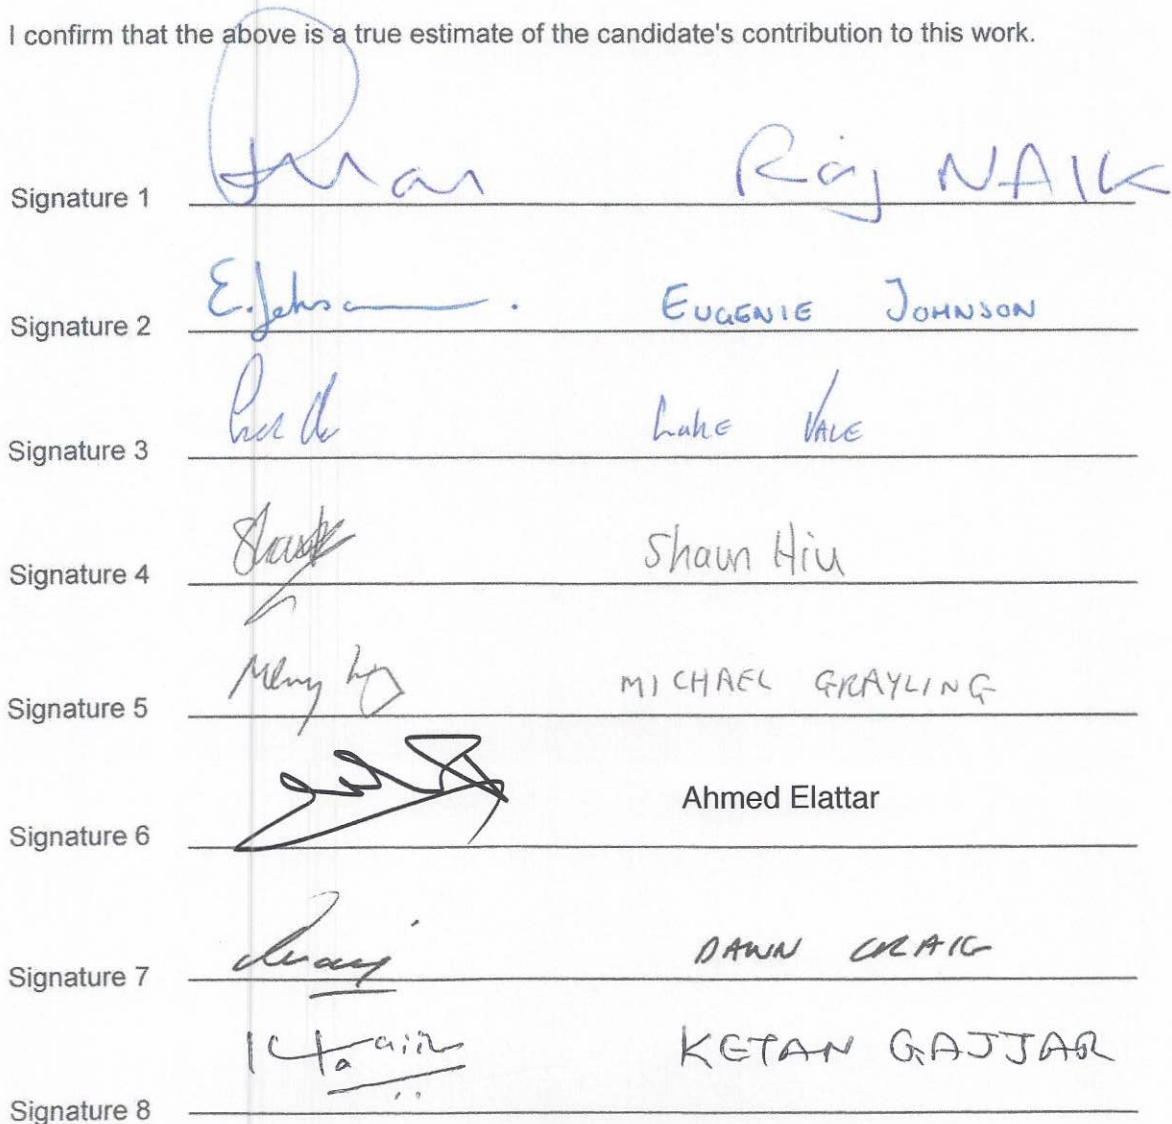 I confirm that the above is a true estimate of the candidate's contribution to this work.
Signature 1 Raj NAIK
Signature 2 E. Johnson EUGENIE JOHNSON
Signature 3 Luke VALE
Signature 4 Shaun Hiu
Signature 5 MICHAEL GRAYLING
Signature 6 Ahmed Elattar
Signature 7 DAWN CRAIG
Signature 8 KETAN GAJJAR